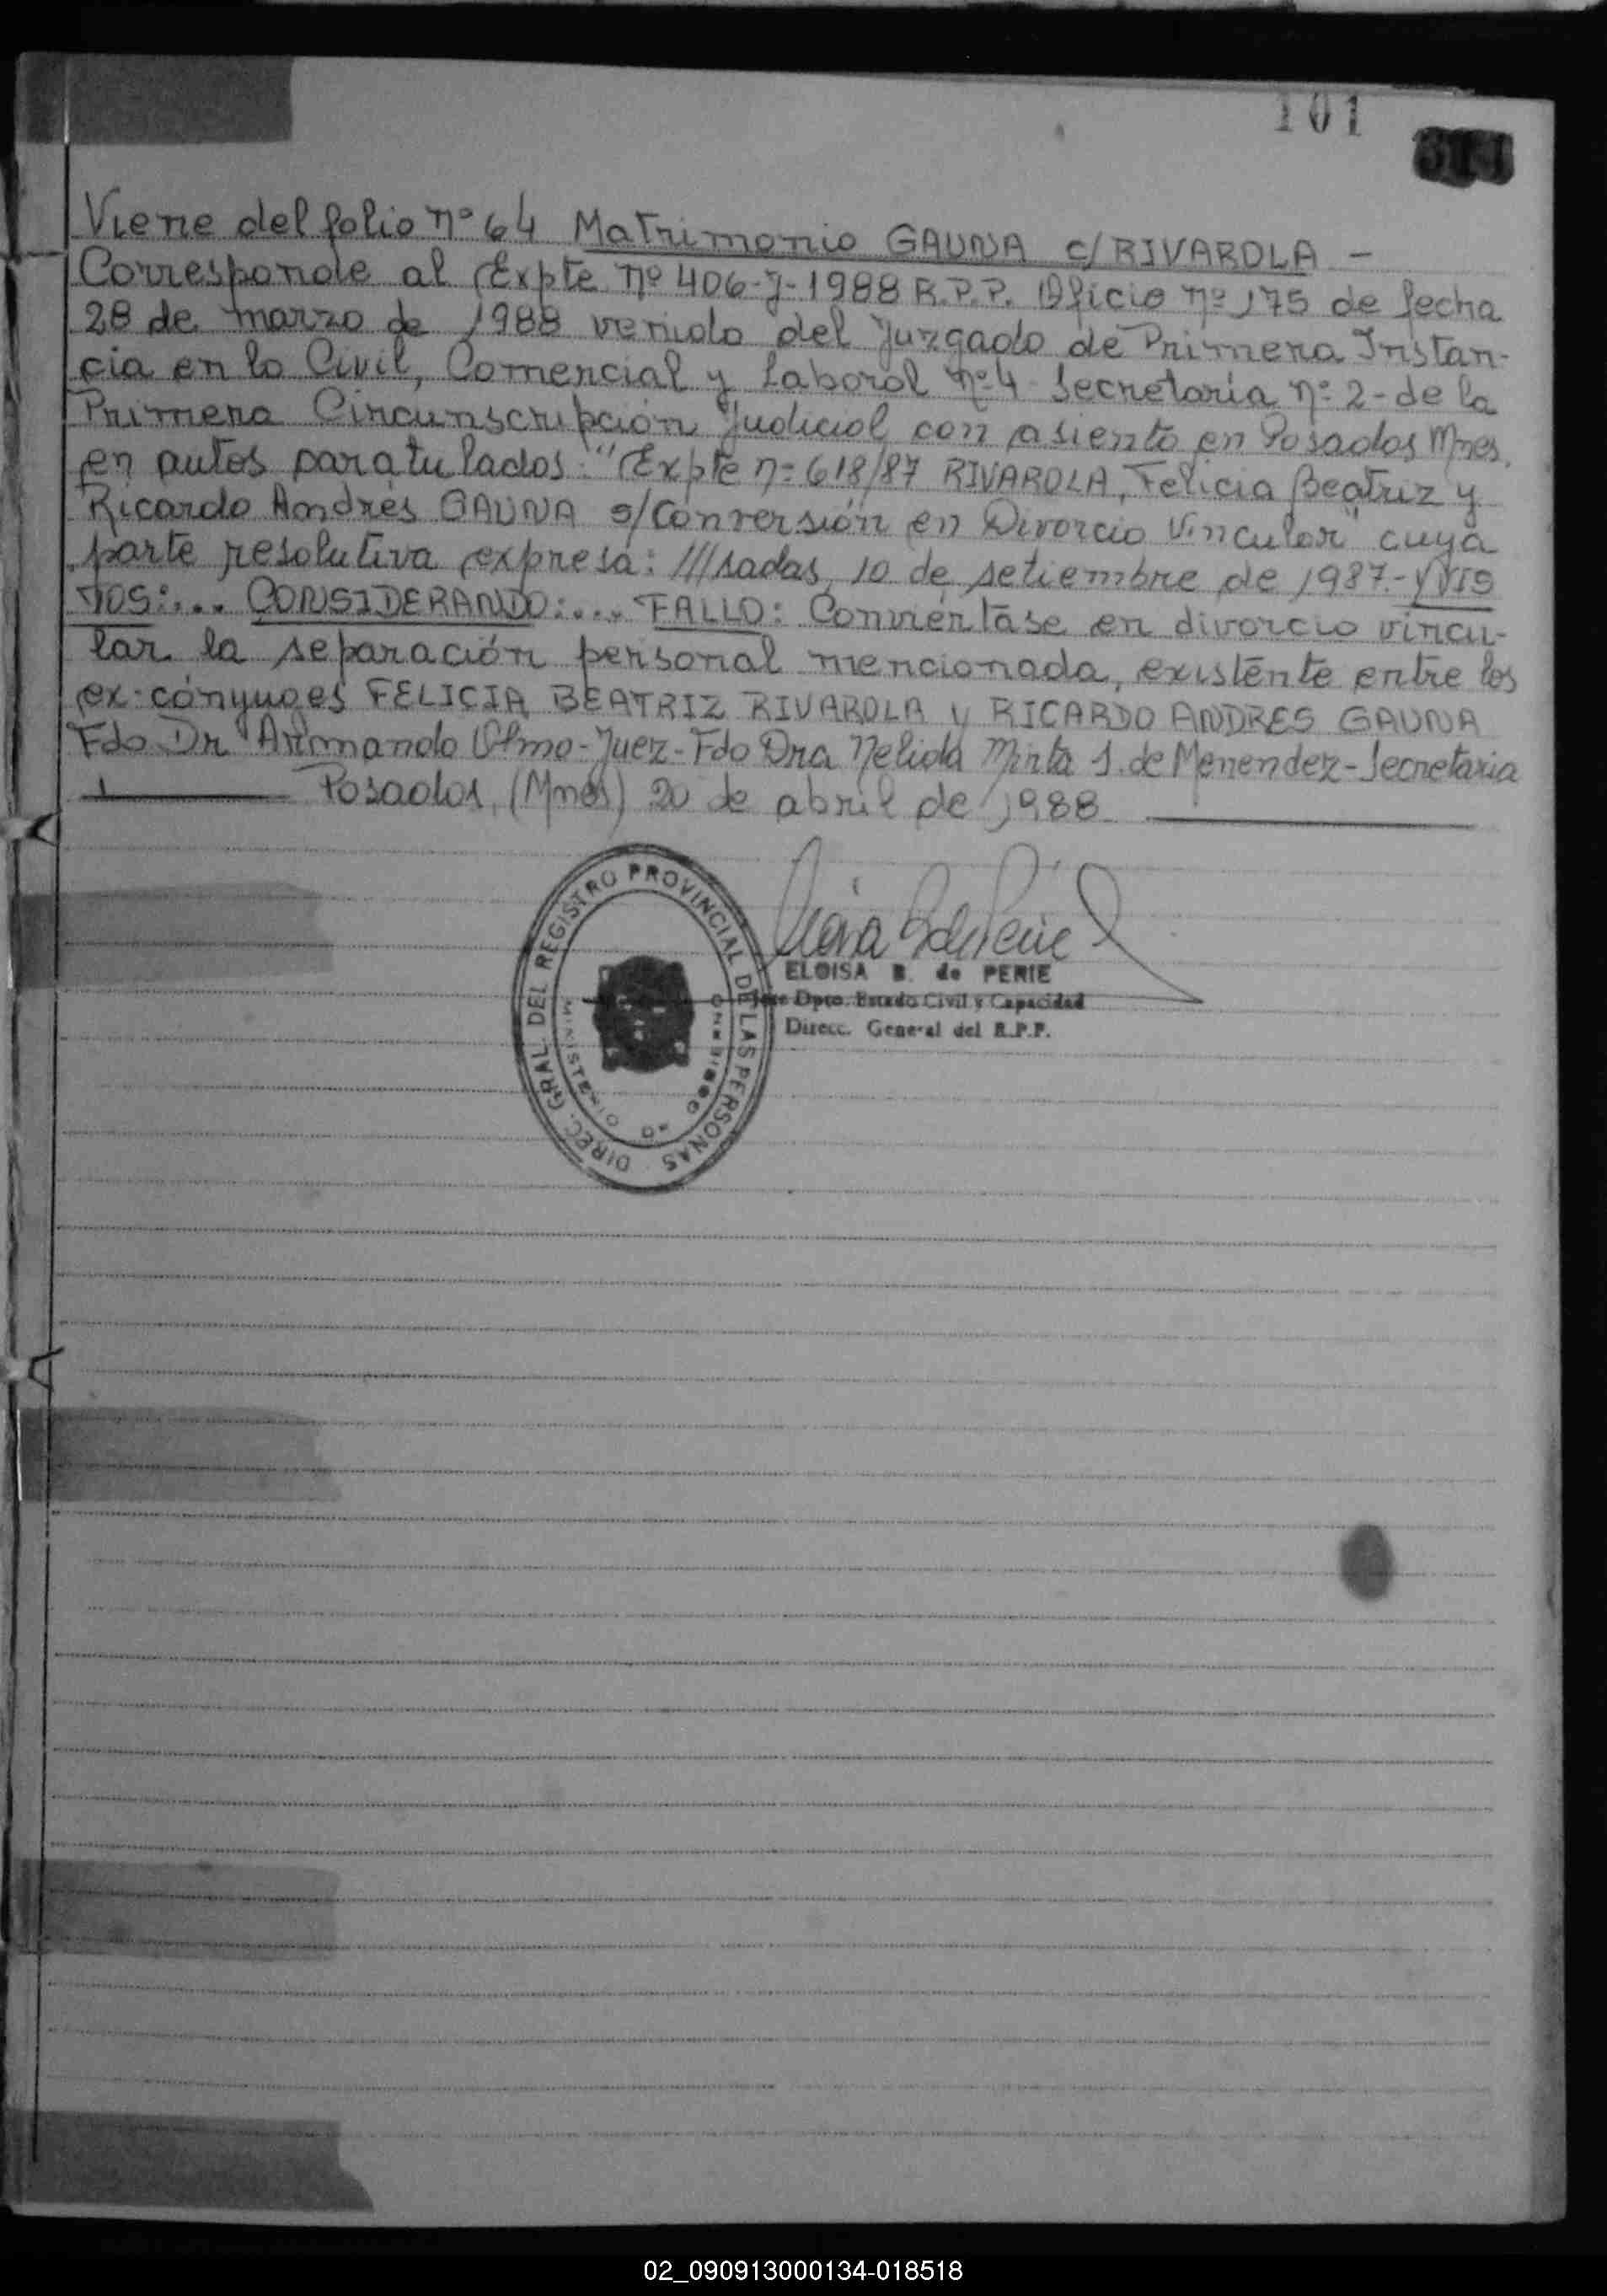 101
Viene del folio nº 64 Matrimonio GAUNA c/ RIVAROLA -
Corresponde al Expte nº 406-J-1988 R.P.P. Oficio nº 175 de fecha
28 de marzo de 1988 venido del Juzgado de Primera Instan-
cia en lo Civil, Comercial y Laboral nº 4 - Secretaría nº 2 - de la
Primera Circunscripción Judicial con asiento en Posadas Mnes,
en autos caratulados: "Expte nº 618/87 RIVAROLA, Felicia Beatriz y
Ricardo Andrés GAUNA s/ Conversión en Divorcio Vincular" cuya
parte resolutiva expresa: ///sadas, 10 de setiembre de 1987.- Y VIS
TOS:... CONSIDERANDO:... FALLO: Conviértase en divorcio vincu-
lar la separación personal mencionada, existente entre los
ex-cónyuges FELICIA BEATRIZ RIVAROLA y RICARDO ANDRES GAUNA
Fdo Dr Armando Olmo - Juez - Fdo Dra Nelida Mirta S. de Menendez - Secretaria
Posadas, (Mnes) 20 de abril de 1988
DIREC. GRAL. DEL REGISTRO PROVINCIAL DE LAS PERSONAS
MINISTERIO DE GOBIERNO
ELOISA B. de PERIE
Jefe Dpto. Estado Civil y Capacidad
Direcc. General del R.P.P.
02_090913000134-018518